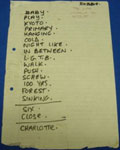 BABY.
PLAY.
KYOTO.
PRIMARY.
HANGING.
COLD.
NIGHT LIKE.
IN BETWEEN.
L.G.T.B.
WALK.
PUSH.
SCREW.
100 YRS.
FOREST.
SINKING.
SIX.
CLOSE.
CHARLOTTE.